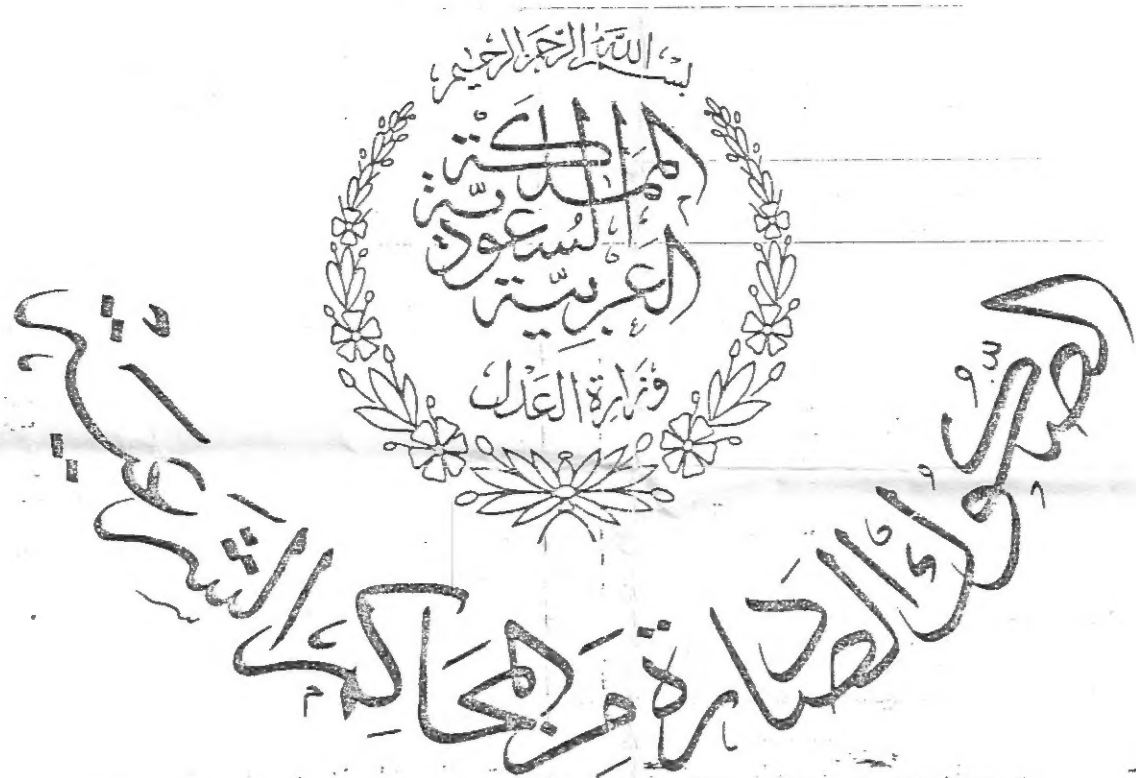 بسم الله الرحمن الرحيم
المملكة
العربية
السعودية
وزارة العدل
الصكوك الصادرة من المحاكم الشرعية